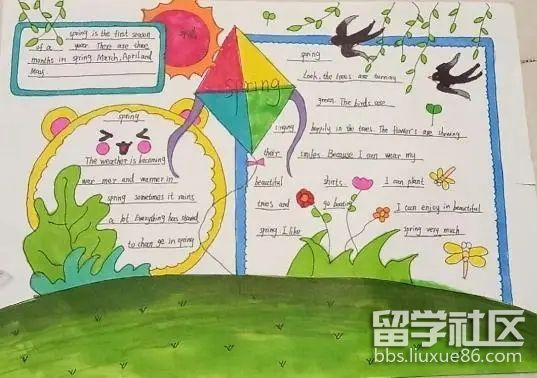 spring is the first season
of a year. There are three
months in spring March, April and
May.
spring
spring
The weather is becoming
war mer and warmer in
spring sometimes it rains
a lot Everything has
to chan ge in spring
spring
Look, the trees are turning
green. The birds are
singing happily in the trees. The flowers are showing
their smiles. Because I can wear my
beautiful shirts I can plant
trees and go boating
I can enjoy in beautiful
spring. I like spring very much
留学社区
bbs.liuxue86.com